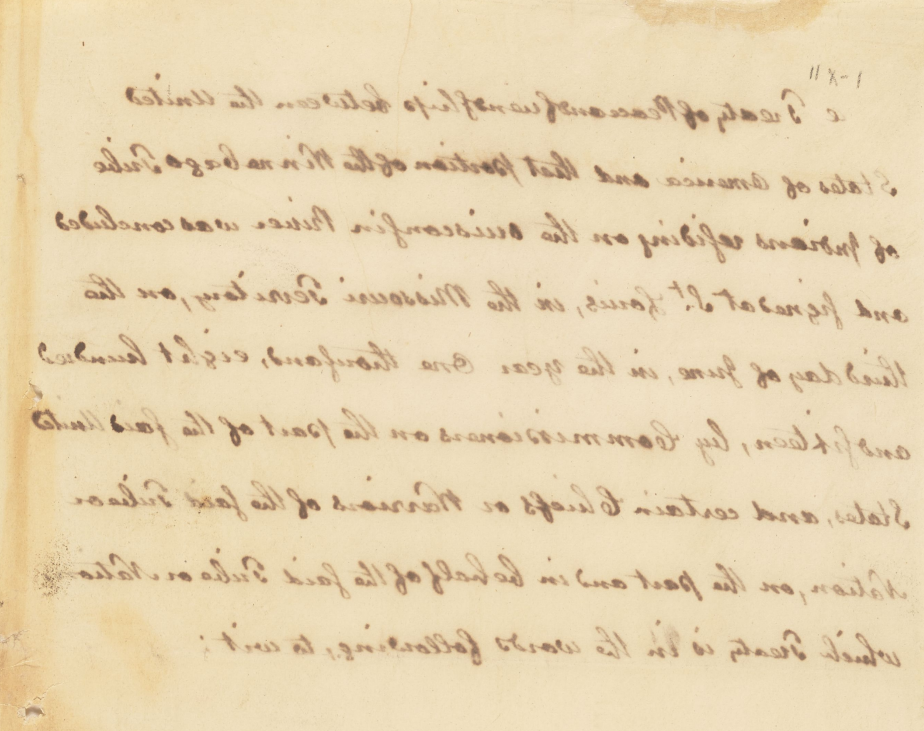 Treaty of Peace and friendship between the United
States of America and that portion of the Winnebago Tribe
of Indians residing on the Ouisconsin River was concluded
and signed at St. Louis, in the Missouri Territory, on the
third day of June, in the year One thousand, eight hundred
and sixteen, by Commissioners on the part of the said United
States, and certain Chiefs or Warriors of the said Tribe or
Nation, on the part and in behalf of the said Tribe or Natio
which Treaty is in the words following, to wit: